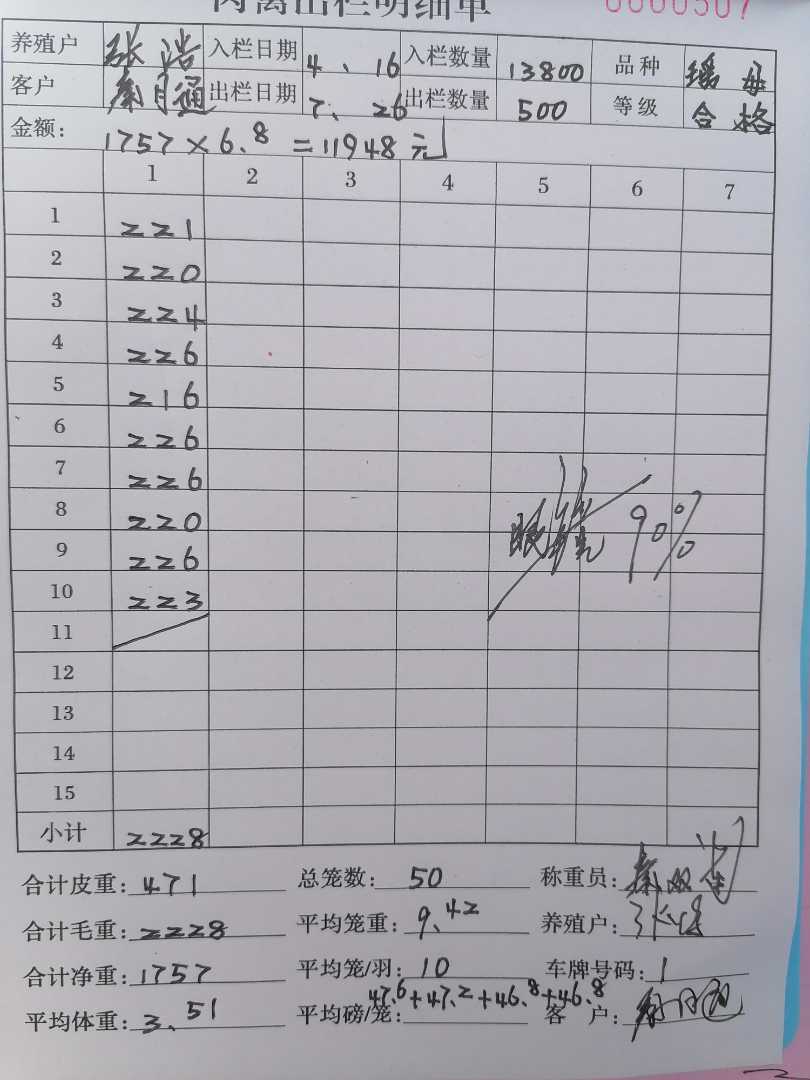 肉禽出栏明细单 0000507
养殖户 张浩 入栏日期 4、16 入栏数量 13800 品种 瑶母
客户 秦月通 出栏日期 7、26 出栏数量 500 等级 合格
金额: 1757×6.8=11948元
1 2 3 4 5 6 7
1 221
2 220
3 224
4 226
5 216
6 226
7 226
8 220 90%
9 226
10 223
11
12
13
14
15
小计 2228
合计皮重: 471 总笼数: 50 称重员:
合计毛重: 2228 平均笼重: 9.42 养殖户: 张浩
合计净重: 1757 平均笼/羽: 10 车牌号码: 1
平均体重: 3、51 平均磅/笼: 47.6+47.2+46.8+46.8 客户: